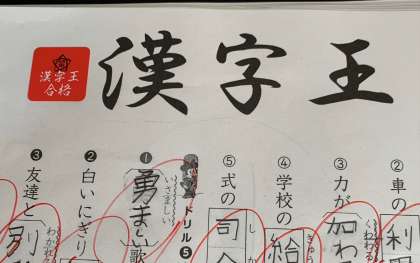 漢字王
合格
漢字王
②車の利
③力が加わ
くわわる
④学校の給
きゅう
⑤式の司
しか
ドリル⑤
❶勇ましい歌
いさましい
❷白いにぎり
❸友達と別
わかれる